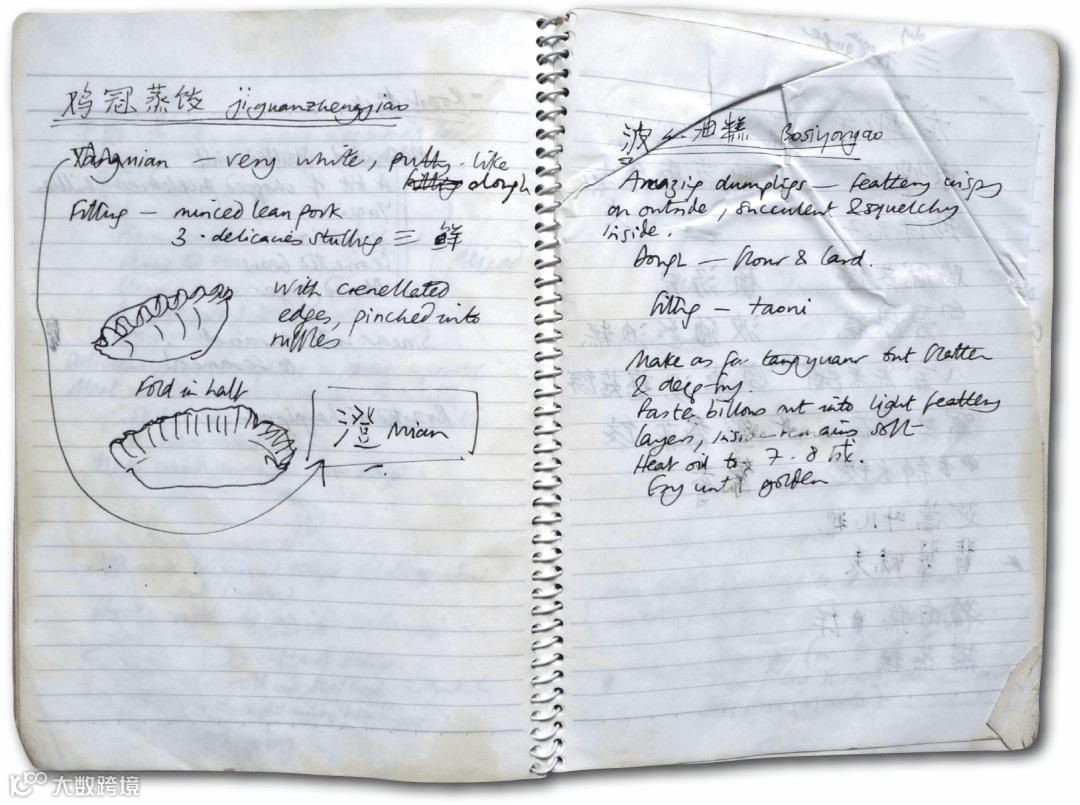 鸡冠蒸饺 jiguanzhengjiao
– very white, putty-like
filling dough
Filling – minced lean pork
3-delicacies stuffing 三鲜
With crenellated
edges, pinched into
ruffles
Fold in half
mian
波丝油糕 Bosiyougao
Amazing dumplings – feathery crispy
on outside, succulent & squelchy
inside.
Dough – flour & lard.
filling – taoni
Make as for tangyuanr but flatten
& deep-fry.
Paste billows out into light feathery
layers, inside remains soft
Heat oil to 7-8成.
Fry until golden
大数跨境